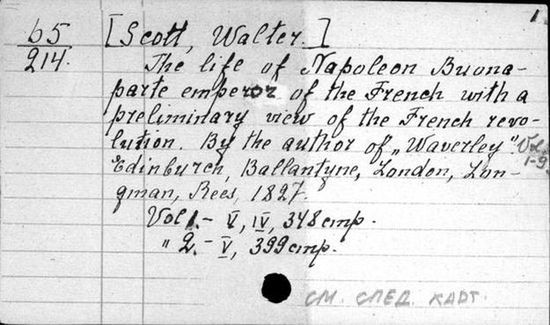 1
65
214.
[Scott, Walter.]
The life of Napoleon Buona-
parte emperor of the French with a
preliminary view of the French revo-
lution. By the author of „Waverley". Vol.
1-9.
Edinburch, Ballantyne, London, Lon-
gman, Rees, 1827.
Vol 1. - V, IV, 348 стр.
" 2. - V, 399 стр.
СМ. СЛЕД. КАРТ.